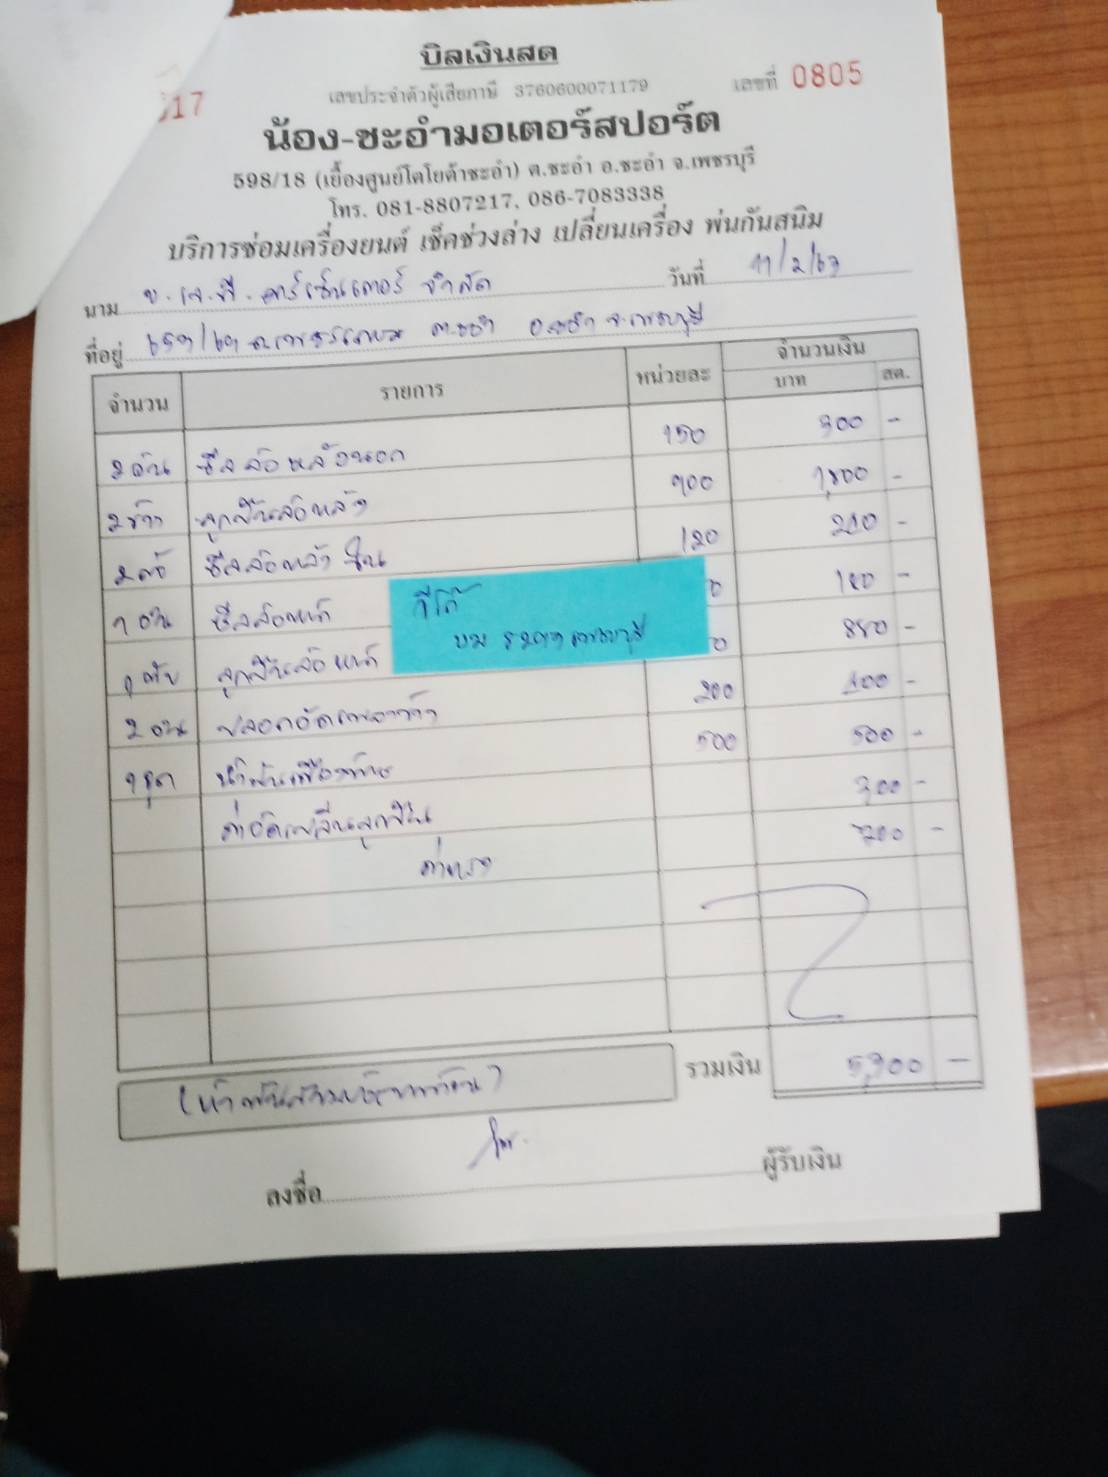 บิลเงินสด
517
เลขประจำตัวผู้เสียภาษี 3760600071179
เลขที่ 0805
น้อง-ชะอำมอเตอร์สปอร์ต
598/18 (เยื้องศูนย์โตโยต้าชะอำ) ต.ชะอำ อ.ชะอำ จ.เพชรบุรี
โทร. 081-8807217, 086-7083338
บริการซ่อมเครื่องยนต์ เช็คช่วงล่าง เปลี่ยนเครื่อง พ่นกันสนิม
นาม บ. เจ.พี. คาร์เซ็นเตอร์ จำกัด วันที่ 11/2/63
ที่อยู่ ถ.เพชรเกษม ต.ชะอำ อ.ชะอำ จ.เพชรบุรี
จำนวน รายการ หน่วยละ จำนวนเงิน
บาท สต.
2 อัน ซีลล้อหลังนอก 150 300 -
2 ข้าง ลูกปืนล้อหลัง 900 1,800 -
2 ตัว ซีลล้อหลังใน 120 240 -
1 อัน ซีลล้อหน้า 0 180 -
1 ตับ ลูกปืนล้อหน้า 0 880 -
วีโก้
บม เพชรบุรี
2 อัน ปลอกอัดเพลาข้าง 200 400 -
1 ชุด น้ำมันเฟืองท้าย 500 500 -
ค่าอัดเปลี่ยนลูกปืน 300 -
ค่าแรง 700 -
รวมเงิน 5,300 -
ลงชื่อ ผู้รับเงิน